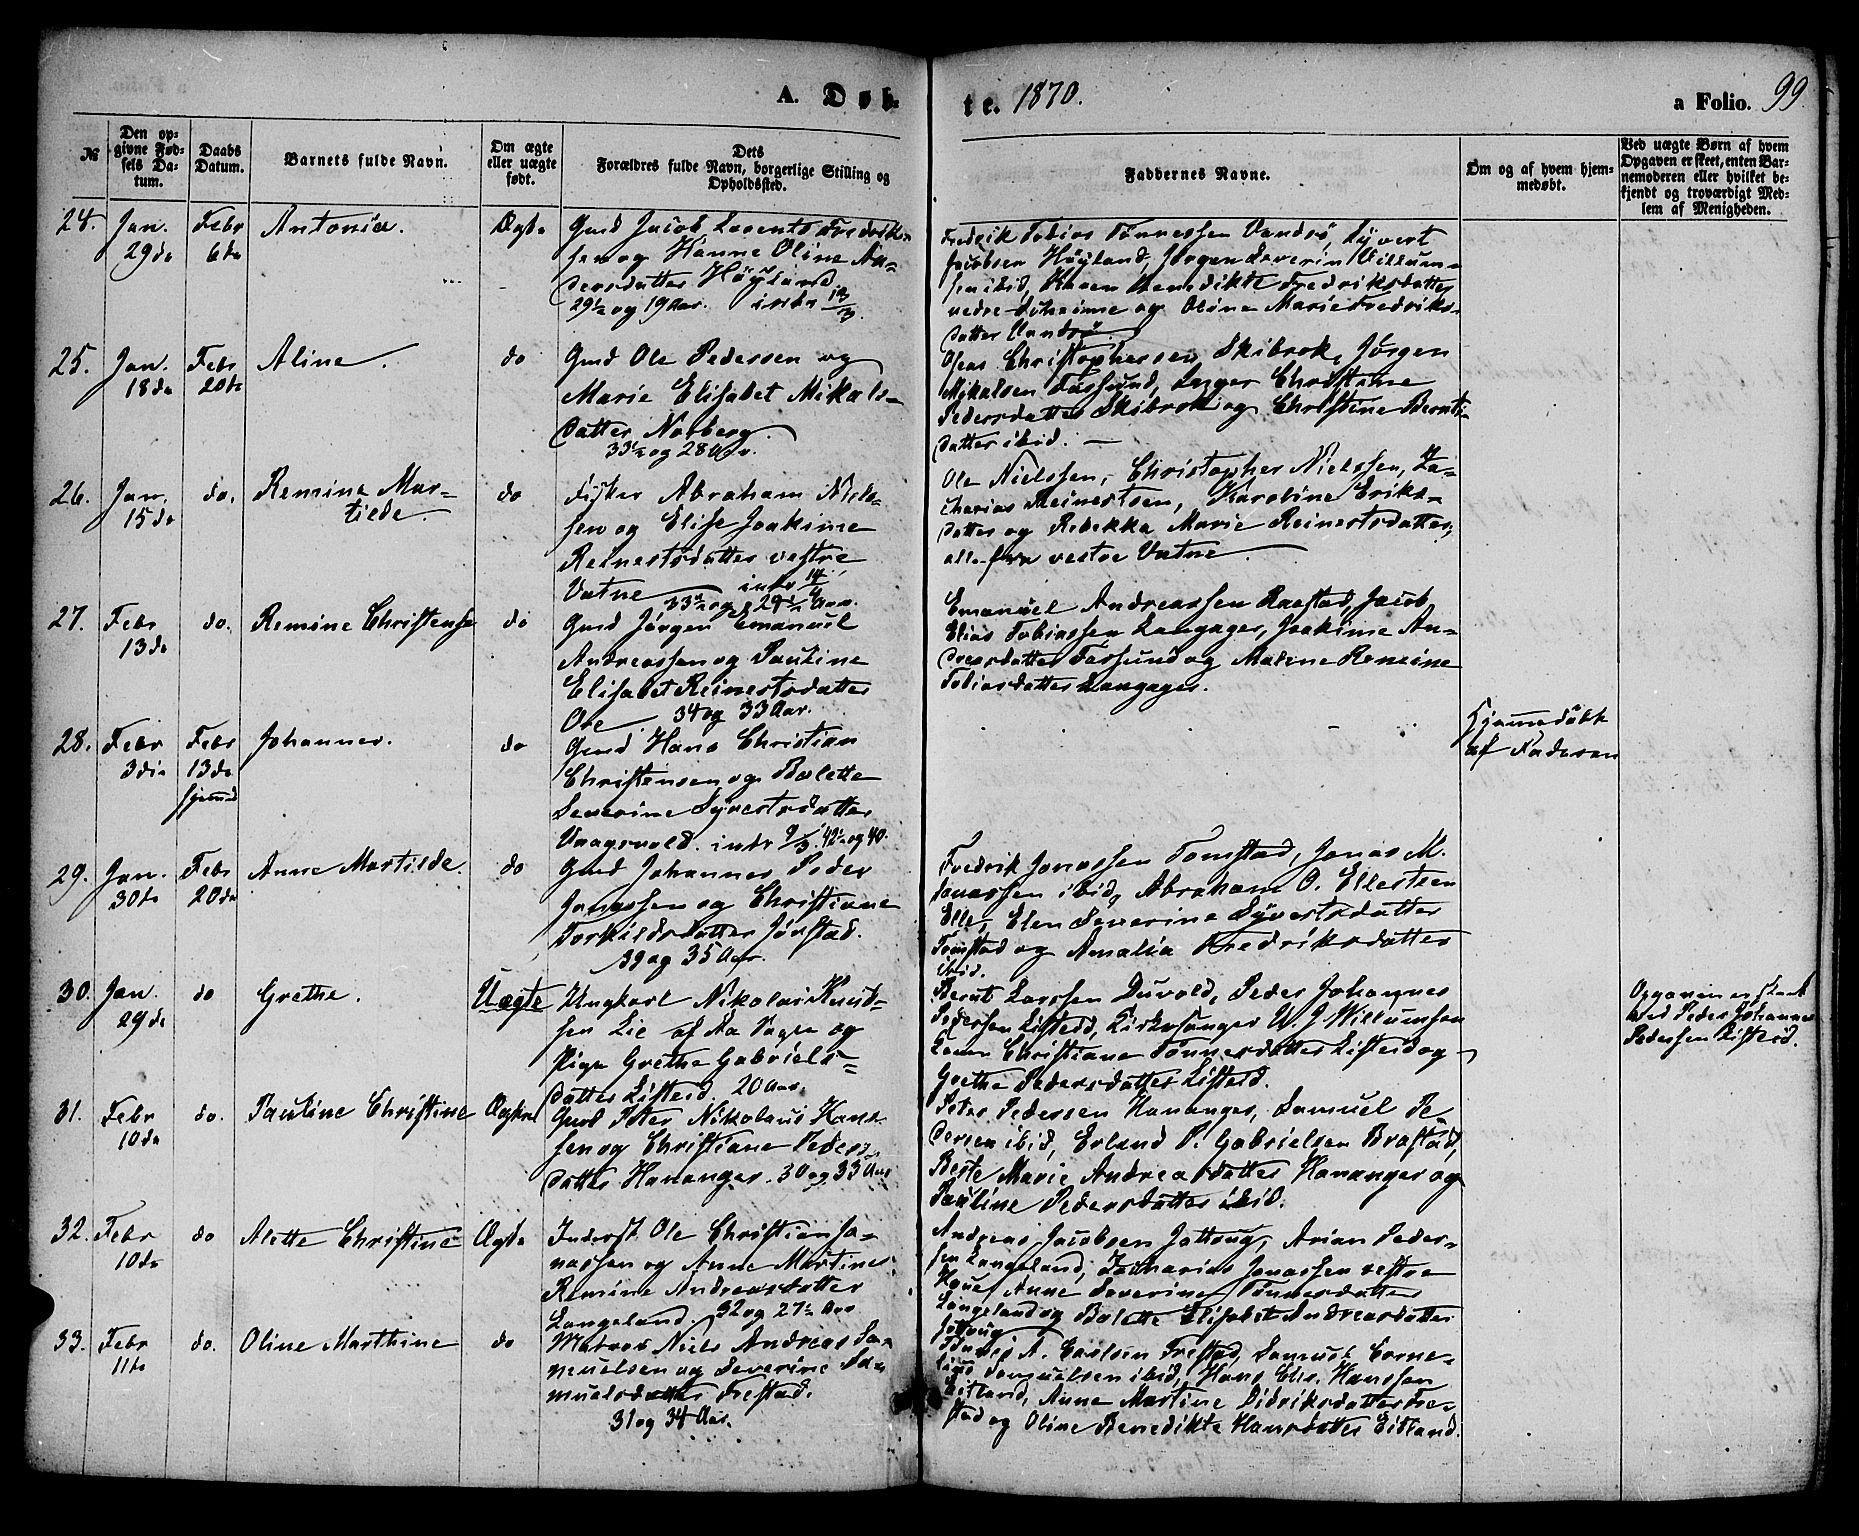 A. Døb-
te. 1870.
a Folio. 99
№
Den op-
givne Fød-
sels Da-
tum.
Daabs
Datum.
Barnets fulde Navn.
Om ægte
eller uægte
født.
Dets
Forældres fulde Navn, borgerlige Stilling og
Opholdssted.
Faddernes Navne.
Om og af hvem hjem-
medøbt.
Ved uægte Børn af hvem
Opgaven er skeet, enten Bar-
nemoderen eller hvilket be-
kjendt og troværdigt Med-
lem af Menigheden.
24.
Jan.
29de
Febr
6te
Antonia.
Ægte
Gmd Jacob Lorents Fredrik-
sen og Hanne Oline An-
dersdatter Høyland
29½ og 19 Aar. intr 13/3.
Fredrik Tobias Tønnessen Vandsø, Syvert
Jacobsen Høyland, Jørgen Severin Villum-
sen ibid, Karen Benedikte Fredriksdatter
nedre og Oline Marie Fredriks-
datter Vandsø
25.
Jan.
18de
Febr
20de
Aline.
do
Gmd Ole Pedersen og
Marie Elisabet Mikals-
datter Norberg.
33½ og 28 Aar.
Oseas Christophersen Skibrok, Jørgen
Mikalsen Farsund, Inger Christine
Pedersdatter Skibrok og Christine Bernts-
datter ibid.
26.
Jan.
15de
do.
Remine Mar-
tilde.
do
Fisker Abraham Niels-
sen og Elise Joakime
Reinertsdatter vestre
Vatne intr
33½ og 29½ Aar.
Ole Nielssen, Christopher Nielssen, Za-
charias Reinertsen, Karoline Eriks-
datter og Rebekka Marie Reinertsdatter,
alle fra vestre Vatne
27.
Febr
13de
do.
Remine Christense
do
Gmd Jørgen Emanuel
Andreassen og Pauline
Elisabet Reinertsdatter
Ore 34 og 33 Aar.
Emanuel Andreassen Raastad, Jacob
Elias Tobiassen Langager, Joakime An-
dreasdatter Farsund og Maline Remine
Tobiasdatter Langager.
28.
Febr
3die
Febr
13de
hjemmd
Johannes.
do
Gmd Hans Christian
Christensen og Bolette
Severine Syvertsdatter
Vaagsvold. intr 9/3 42½ og 40.
Hjemmedøbt
af Faderen
29.
Jan.
30te
Febr
20de
Anne Martilde.
do
Gmd Johannes Peder
Jonassen og Christiane
Torkildsdatter Jørstad.
39 og 35 Aar.
Fredrik Jonassen Tomstad, Jonas M.
Jonassen ibid, Abraham O. Ellestsen
Elle, Elen Severine Syvertsdatter
Tomstad og Amalia Fredriksdatter
ibid.
30.
Jan.
29de
do
Grethe.
Uægte
Ungkarl Nikolai Knud-
sen Lie af Aa Sogn og
Pige Grethe Gabriels-
datter Listeid. 20 Aar.
Bernt Larssen Duvold, Peder Johannes
Pedersen Listeid, Kirkesanger W. J Willumsen
Christiane Tønnesdatter Listeid og
Grethe Pedersdatter Listeid.
Opgaven er skeet
ved Peder Johannes
Pedersen Listeid.
31.
Febr
10de
do.
Pauline Christine
Ægte
Gmd Peter Nikolaus Hans-
sen og Christiane Peders-
datter Hananger. 30 og 33 Aar
Peter Pedersen Hananger, Samuel Pe-
dersen ibid, Erland P. Gabrielsen Brastad,
Berte Marie Andreasdatter Hananger og
Pauline Pedersdatter ibid.
32.
Febr
10de
do
Alette Christine
Ægte
Inderst Ole Christian Jo-
nassen og Anne Martine
Remine Andreasdatter
Langeland 32 og 27½ Aar
Andreas Jacobsen Jøttoug, Arian Peder-
sen Langeland, Zacharias Jonassen vestre
Haue, Anne Severine Tønnesdatter
Langeland og Bolette Elisabet Andreasdatter
Jøttoug
33.
Febr
11te
do.
Oline Marthine
do
Matros Niels Andreas Sa-
muelsen og Severine Sa-
muelsdatter Frestad.
31 og 34 Aar.
Tønnes A. Carlsen Frestad, Samuel Corne-
lius Samuelsen ibid, Hans Chr. Hanssen
Eitland, Anne Martine Didriksdatter Fre-
stad og Oline Benedikte Hansdatter Eitland.